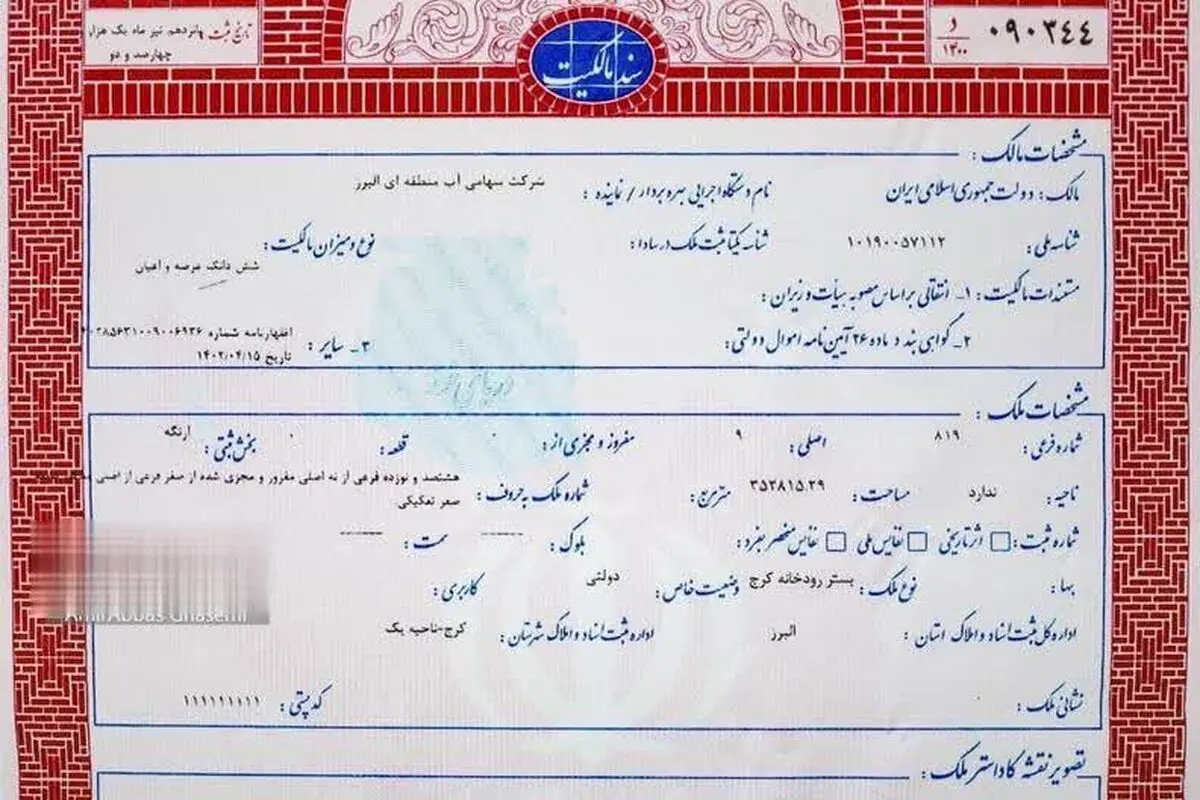 ۰۹۰۳۴۴
د
۱۴۰۰
سند مالکیت
تاریخ ثبت پانزدهم تیر ماه یک هزار
چهارصد و دو
مشخصات مالک :
مالک : دولت جمهوری اسلامی ایران نام دستگاه اجرایی بهره بردار / نماینده : شرکت سهامی آب منطقه ای البرز
شناسه ملی : ۱۰۱۹۰۰۵۷۱۱۲ شناسه یکتا ثبت ملک در سادا : نوع و میزان مالکیت :
شش دانگ عرصه و اعیان
مستندات مالکیت : ۱- انتقالی بر اساس مصوبه هیأت وزیران :
۲- گواهی بند د ماده ۲۶ آیین نامه اموال دولتی : ۳- سایر : اظهارنامه شماره
تاریخ ۱۴۰۲/۰۴/۱۵
مشخصات ملک :
شماره فرعی : ۸۱۹ اصلی : ۹ مفروز و مجزی از : ۰ قطعه : ۰ بخش ثبتی : ارنگه
ناحیه : ندارد مساحت : ۳۵۲۸۱۵.۲۹ متر مربع : شماره ملک به حروف : هشتصد و نوزده فرعی از نه اصلی مفروز و مجزی شده از صفر فرعی از اصلی
صفر تفکیکی
شماره ثبت : اثر تاریخی نفایس ملی نفایس منحصر بفرد : بلوک : ------ سمت : ------
بها : نوع ملک : بستر رودخانه کرج وضعیت خاص : دولتی کاربری :
اداره کل ثبت اسناد و املاک استان : البرز اداره ثبت اسناد و املاک شهرستان : کرج-ناحیه یک
نشانی ملک : کد پستی : ۱۱۱۱۱۱۱۱۱۱
تصویر نقشه کاداستر ملک :
AmirAbbas Ghasemi